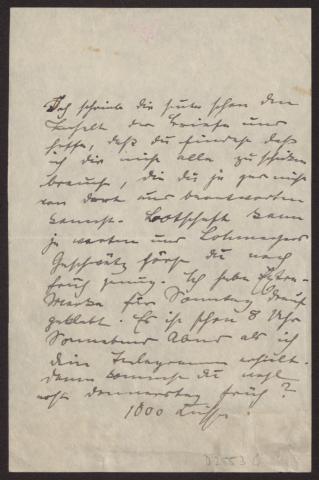 Ich schreibe dir heute schon den
Inhalt der Briefe und
hoffe, daß du findest daß
ich dir nicht alle zu schicken
brauche, die du ja gar nicht
von dort aus beantworten
kannst. Botschaft kann
ja warten und
Geschwätz hörst du noch
früh genug. Ich habe
Marke für Sonntag drauf
geklebt. Es ist schon 8 Uhr
Sonnabend Abend als ich
dein Telegramm erhielt.
Dann kommst du wohl
erst Donnerstag früh?
1000 Küsse.